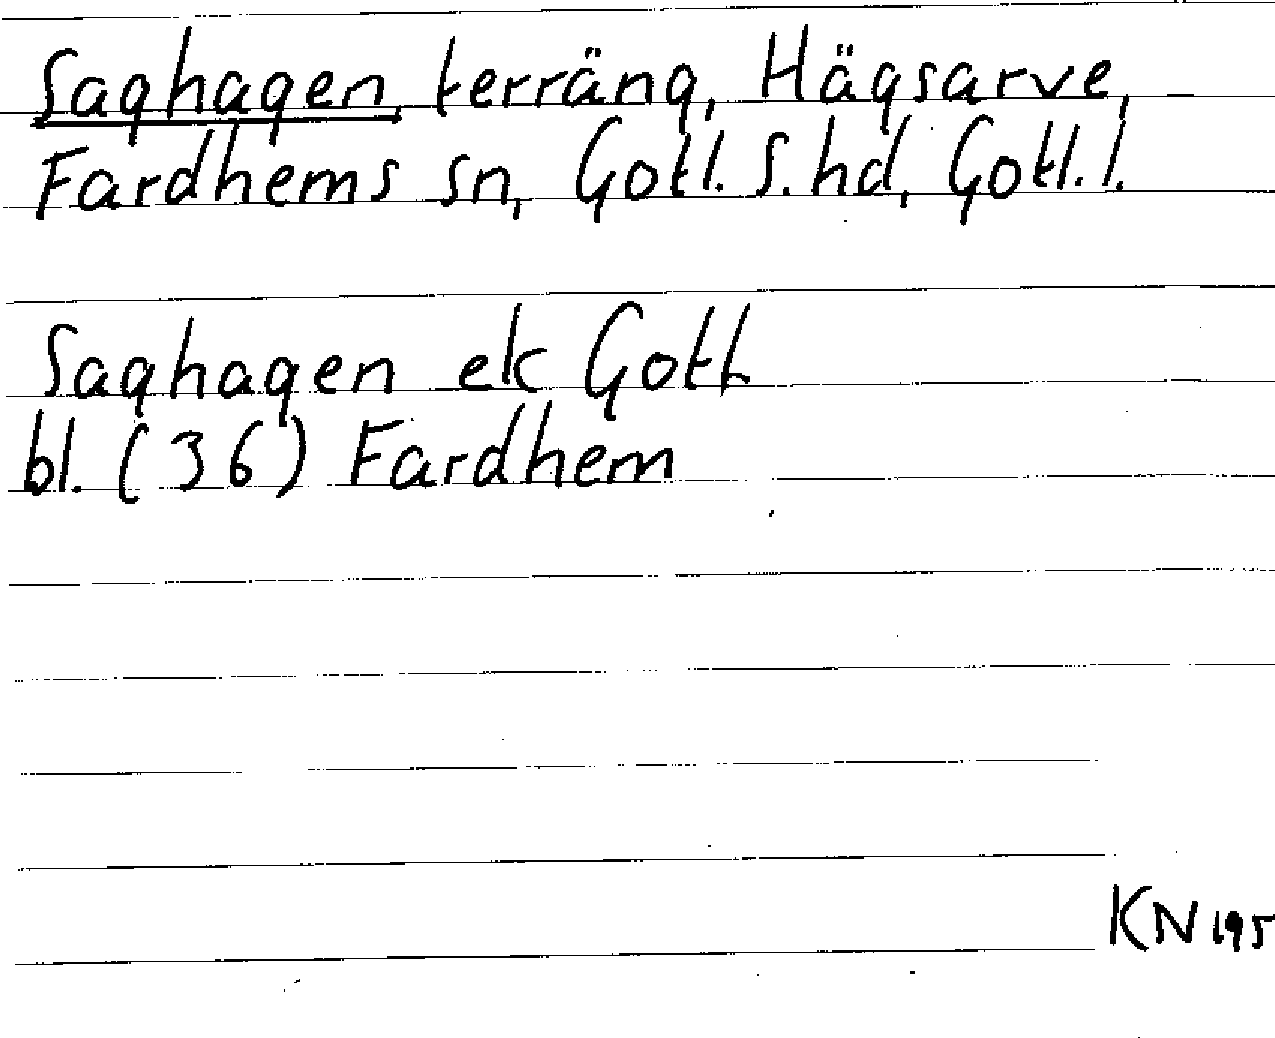 Saghagen, terräng, Hägsarve,
Fardhems sn, Gotl. S. hd, Gotl. l.
Saghagen ek Gotl.
bl. (36) Fardhem
KN 195